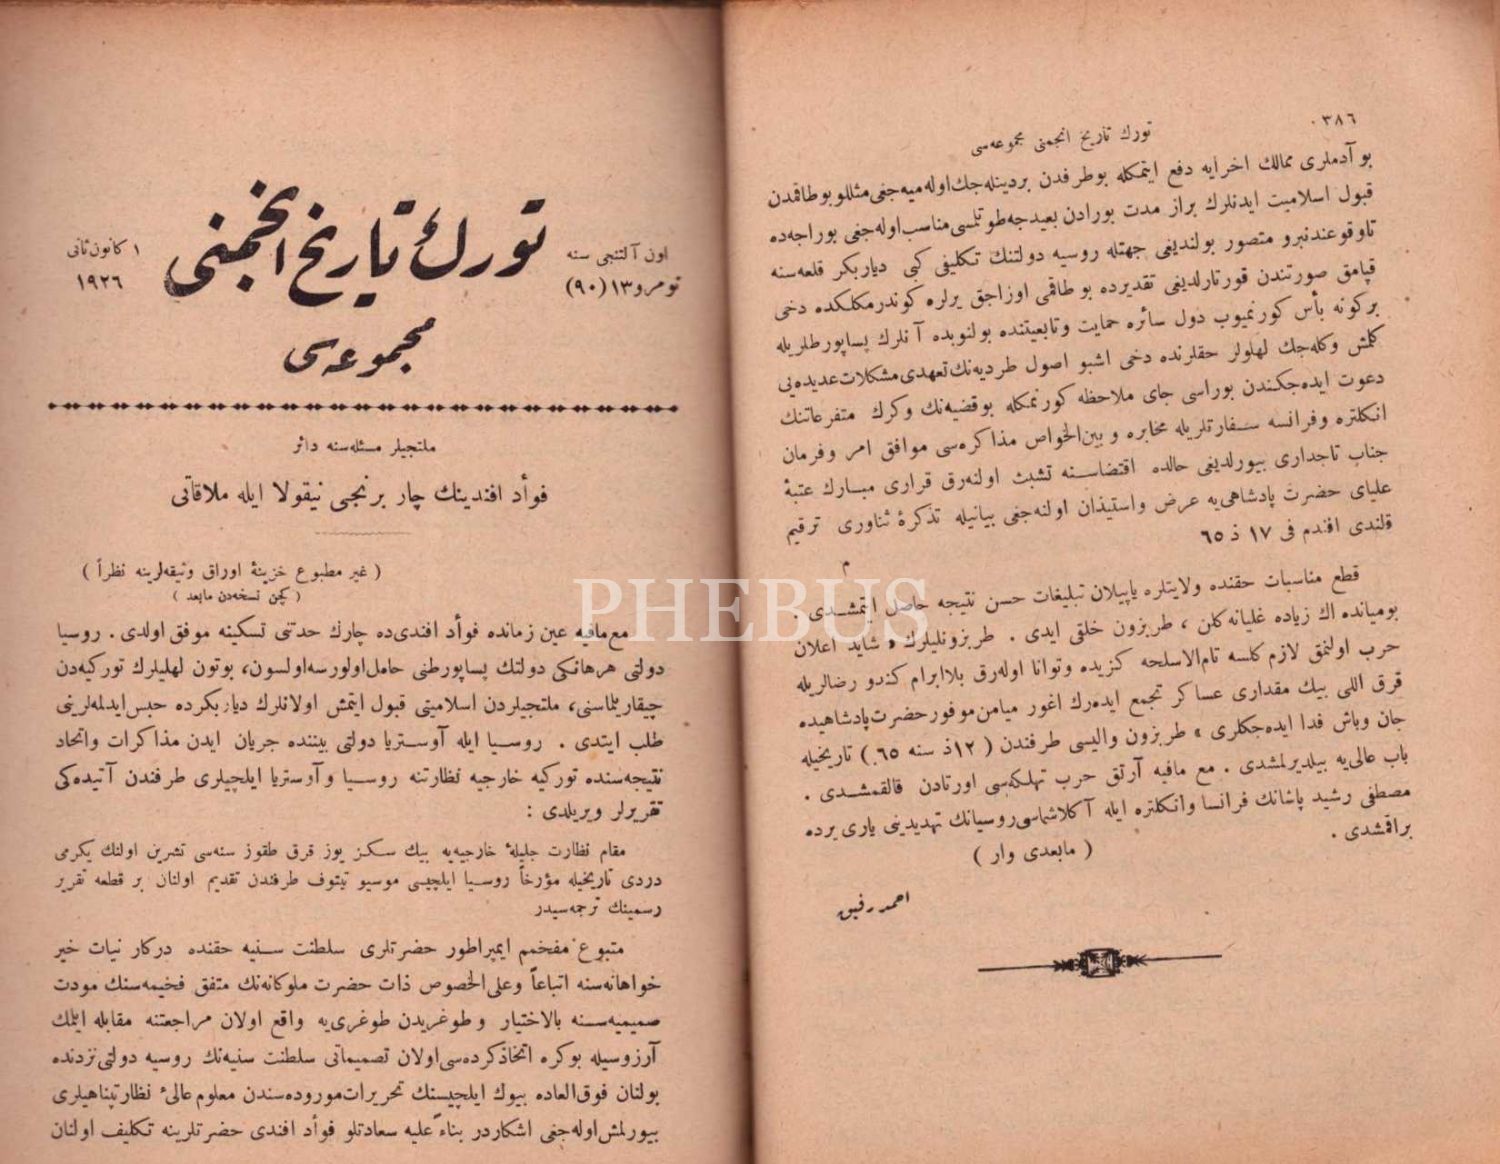 ٣٨٦
تورك تاريخ انجمنى مجموعه‌سى
بو آدملرى ممالك اخرايه دفع ايتمكله بوطرفدن بردينله‌جك اوله‌ميه‌جغى مثللو بوطاقمدن
قبول اسلاميت ايدنلرك براز مدت بورادن بعيدجه طوتلمسى مناسب اوله‌جغى بوراجه‌ده
تاوقوعندنبرو متصور بولنديغى جهتله روسيه دولتنك تكليفى كبى دياربكر قلعه‌سنه
قپامق صورتندن قورتارلديغى تقديرده بو طاقمى اوزاجق يرلره كوندرمكلكده دخى
بركونه بأس كورنميوب دول سائره حمايت وتابعيتنده بولنوبده آنلرك پساپورطلريله
كلمش وكله‌جك لهلولر حقلرنده دخى اشبو اصول طرديه‌نك تعهدى مشكلات عديده‌يى
دعوت ايده‌جكندن بوراسى جاى ملاحظه كورنمكله بوقضيه‌نك وكرك متفرعاتنك
انكلتره وفرانسه سفارتلريله مخابره و بين‌الخواص مذاكره‌سى موافق امر وفرمان
جناب تاجدارى بيورلديغى حالده اقتضاسنه تشبث اولنه‌رق قرارى مبارك عتبۀ
علياى حضرت پادشاهى‌يه عرض واستيذان اولنه‌جغى بيانيله تذكرۀ ثناورى ترقيم
قلندى افندم فى ١٧ ذ ٦٥
م
قطع مناسبات حقنده ولايتلره ياپيلان تبليغات حسن نتيجه حاصل ايتمشدى.
بوميانده اك زياده غليانه كلن، طربزون خلقى ايدى. طربزونليلرك «شايد اعلان
حرب اولنمق لازم كلسه تام‌الاسلحه كزيده وتوانا اوله‌رق بلاابرام كندو رضالريله
قرق اللى بيك مقدارى عساكر تجمع ايده‌رك اغور ميامن موفور حضرت پادشاهيده
جان وباش فدا ايده‌جكلرى» طربزون واليسى طرفندن (١٢ذ سنه ٦٥) تاريخيله
باب عالى‌يه بيلديرلمشدى. مع مافيه آرتق حرب تهلكه‌سى اورتادن قالقمشدى.
مصطفى رشيد پاشانك فرانسا وانكلتره ايله آكلاشماسى روسيانك تهديدينى يارى يرده
براقمشدى.
(مابعدى وار)
احمد رفيق
اون آلتنجى سنه
نومرو ١٣ (٩٠)
تورك تاريخ انجمنى
مجموعه‌سى
١ كانون ثانى
١٩٢٦
ملتجيلر مسئله‌سنه دائر
فوأد افندينك چار برنجى نيقولا ايله ملاقاتى
(غير مطبوع خزينۀ اوراق وثيقه‌لرينه نظراً)
(كچن نسخه‌دن مابعد)
مع‌مافيه عين زمانده فوأد افندى‌ده چارك حدتنى تسكينه موفق اولدى. روسيا
دولتى هرهانكى دولتك پساپورطنى حامل اولورسه اولسون، بوتون لهليلرك توركيه‌دن
چيقاريلماسنى، ملتجيلردن اسلاميتى قبول ايتمش اولانلرك دياربكرده حبس ايدلمه‌لرينى
طلب ايتدى. روسيا ايله آوستريا دولتى بيننده جريان ايدن مذاكرات واتحاد
نتيجه‌سنده توركيه خارجيه نظارتنه روسيا وآوستريا ايلچيلرى طرفندن آتيده‌كى
تقريرلر ويريلدى:
مقام نظارت جليلۀ خارجيه‌يه بيك سكز يوز قرق طقوز سنه‌سى تشرين اولنك يكرمى
دردى تاريخيله مؤرخاً روسيا ايلچيسى موسيو تيتوف طرفندن تقديم اولنان بر قطعه تقرير
رسمينك ترجمه‌سيدر
متبوع مفخمم ايمپراطور حضرتلرى سلطنت سنيه حقنده دركار نيات خير
خواهانه‌سنه اتباعاً وعلى‌الخصوص ذات حضرت ملوكانه‌نك متفق فخيمه‌سنك مودت
صميميه‌سنه بالاختيار وطوغريدن طوغرى‌يه واقع اولان مراجعتنه مقابله ايلمك
آرزوسيله بوكره اتخاذكرده‌سى اولان تصميماتى سلطنت سنيه‌نك روسيه دولتى نزدنده
بولنان فوق‌العاده بيوك ايلچيسنك تحريرات موروده‌سندن معلوم عالئ نظارتپناهيلرى
بيورلمش اوله‌جغى اشكاردر بناءً عليه سعادتلو فوأد افندى حضرتلرينه تكليف اولنان
PHEBUS